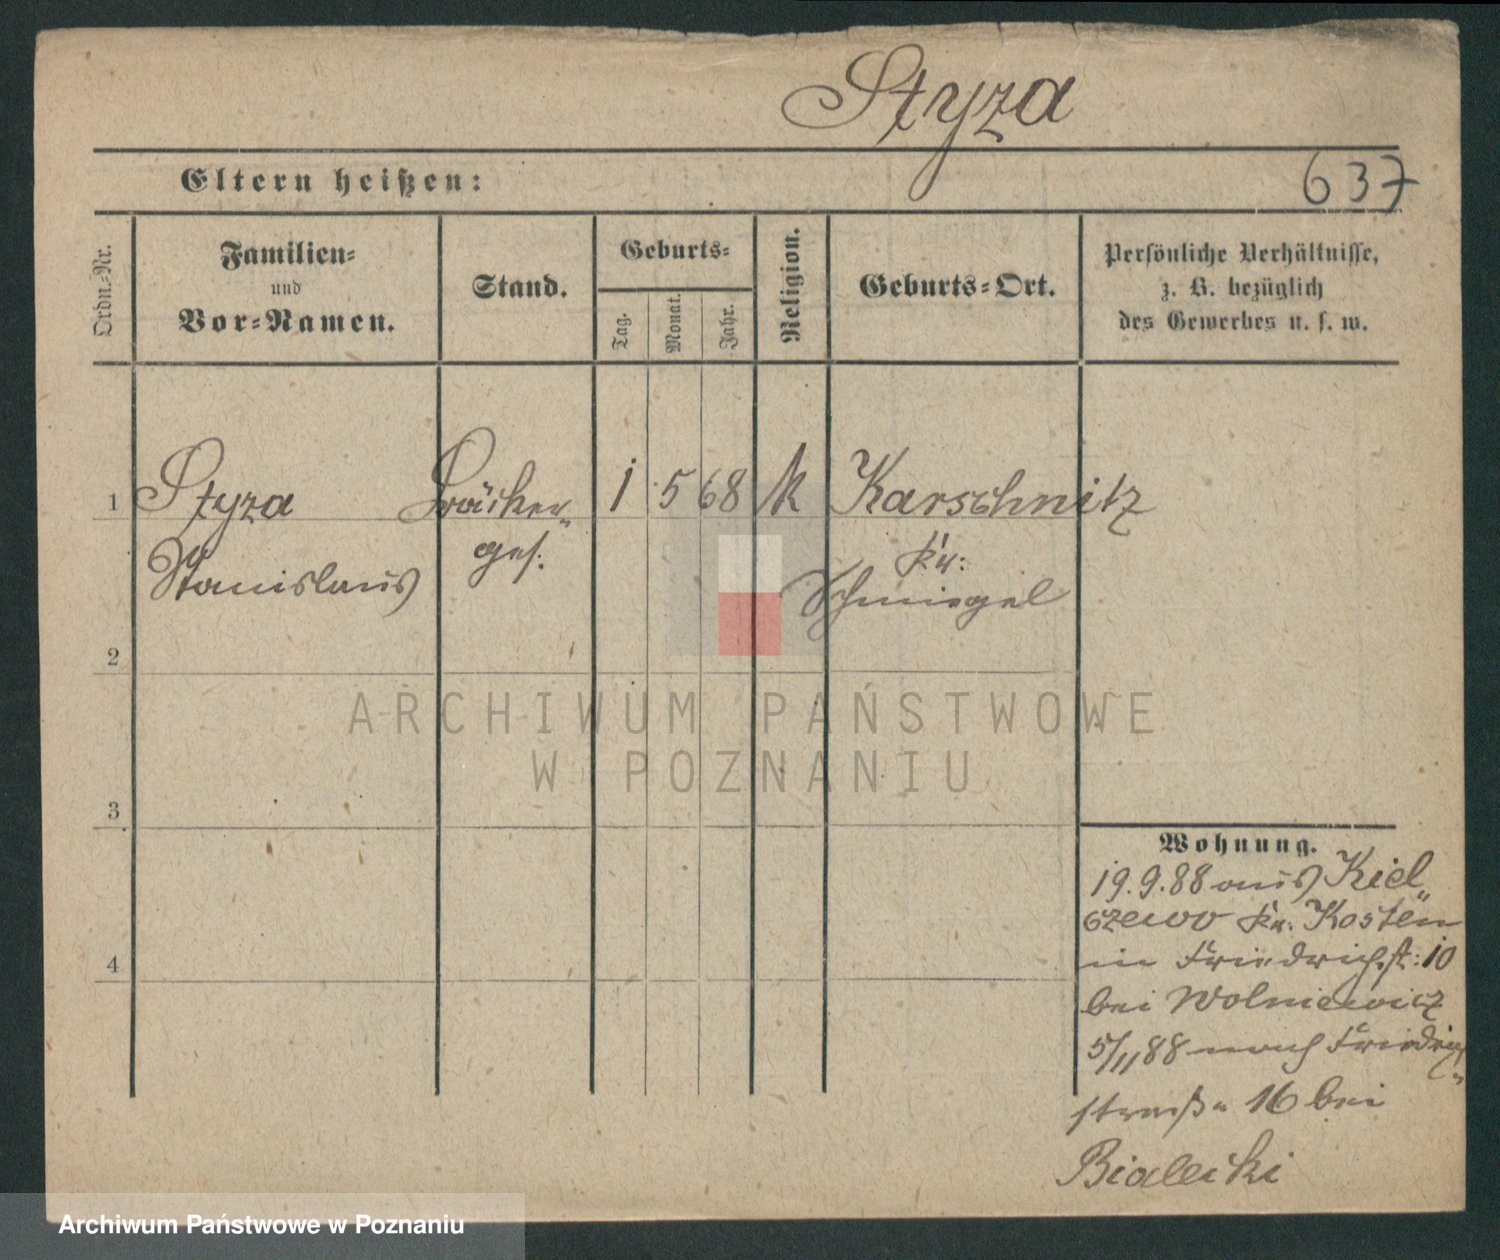 Styza
637
Eltern heißen:
Ordn.-Nr.
Familien-
und
Vor-Namen.
Stand.
Geburts-
Tag.
Monat.
Jahr.
Religion.
Geburts-Ort.
Persönliche Verhältnisse,
z. B. bezüglich
des Gewerbes u. s. w.
1
Styza
Stanislaus
Bäcker-
ges.
1
5
68
k
Karschnitz
Kr:
Schmiegel
2
3
4
Wohnung.
19.9.88 aus Kiel-
czewo Kr. Kosten
in Friedrichst: 10
bei Wolniewicz
5/11 88 nach Friedrich-
straße 16 bei
Bialecki
ARCHIWUM PAŃSTWOWE
W POZNANIU
Archiwum Państwowe w Poznaniu